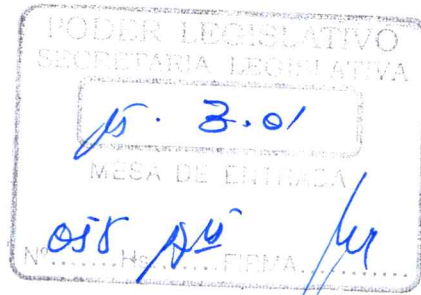 PODER LEGISLATIVO
SECRETARIA LEGISLATIVA
15. 3.01
MESA DE ENTRADA
Nº 058 Hs. FIRMA